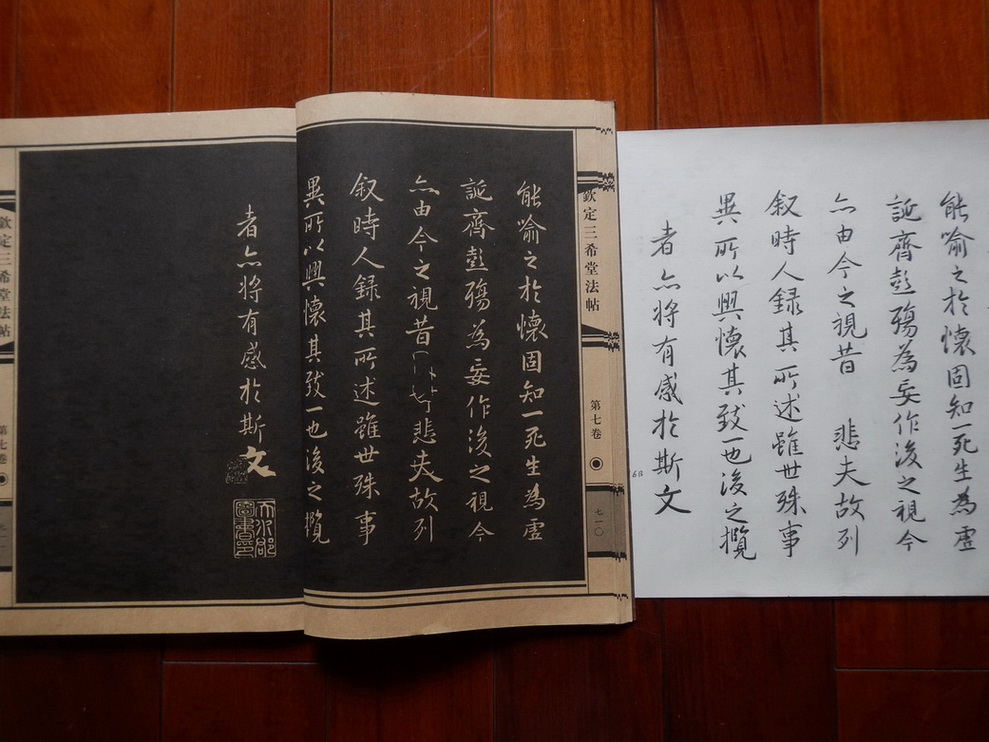 欽定三希堂法帖
第七卷
七一〇
能喻之於懷固知一死生為虛
誕齊彭殤為妄作後之視今
亦由今之視昔悲夫故列
叙時人録其所述雖世殊事
異所以興懷其致一也後之攬
者亦將有感於斯文
天水郡
圖書印
欽定三希堂法帖
第七卷
能喻之於懷固知一死生為虛
誕齊彭殤為妄作後之視今
亦由今之視昔 悲夫故列
叙時人録其所述雖世殊事
異所以興懷其致一也後之攬
者亦將有感於斯文